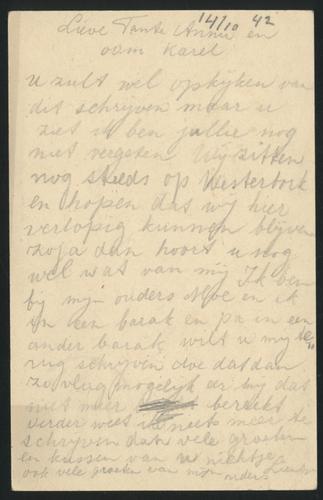 14/10 42
Lieve Tante Annie en
oom Karel
u zult wel opkijken van
dit schrijven maar u
ziet ik ben jullie nog
niet vergeten. Wij zitten
nog steeds op Westerbork
en hopen dat wij hier
verlopig kunnen blijven
zoja dan hoort u nog
wel wat van mij Ik ben
bij mijn ouders Moe en ik
in een barak en pa in een
ander barak wilt u mij te-
rug schrijven doe dat dan
zo vlug mogelijk eer mij dat
niet meer bereikt
verder weet ik niets meer te
schrijven dan vele groeten
en kussen van u nichtje
ook vele groeten van mijn ouders